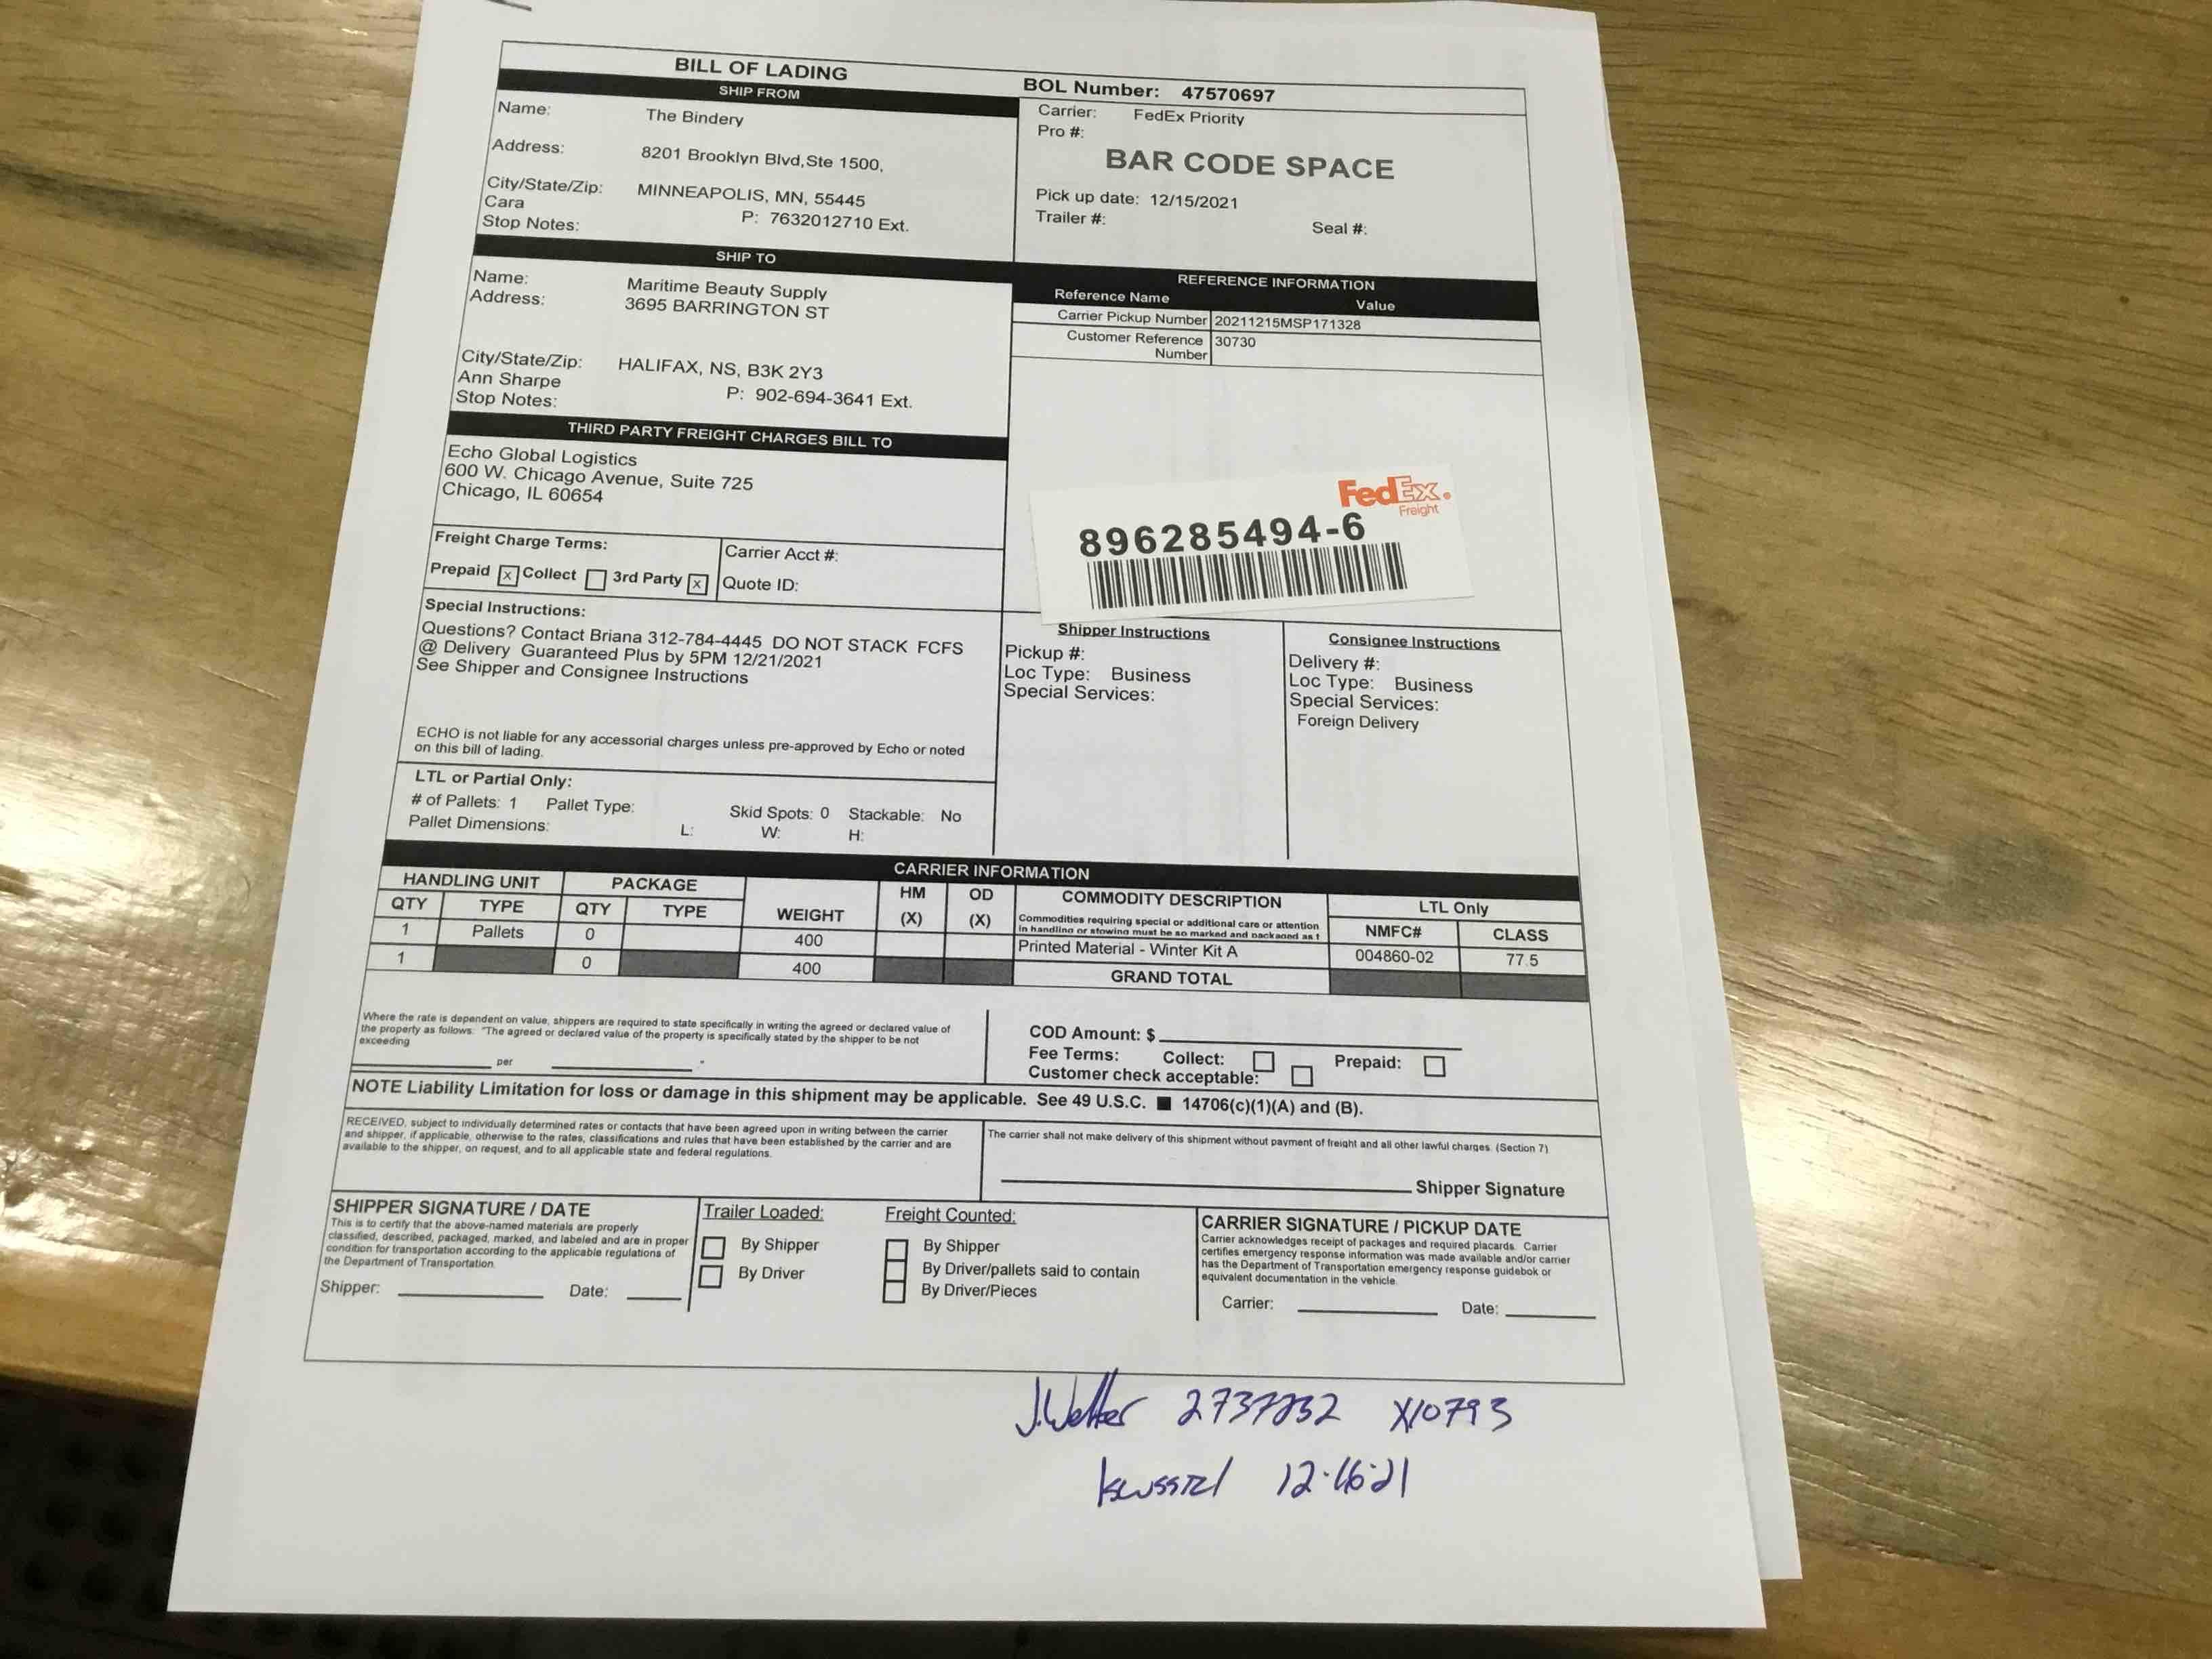 BILL OF LADING
BOL Number: 47570697
SHIP FROM
Name: The Bindery
Address: 8201 Brooklyn Blvd,Ste 1500,
City/State/Zip: MINNEAPOLIS, MN, 55445
Cara P: 7632012710 Ext.
Stop Notes:
Carrier: FedEx Priority
Pro #:
BAR CODE SPACE
Pick up date: 12/15/2021
Trailer #: Seal #:
SHIP TO
Name: Maritime Beauty Supply
Address: 3695 BARRINGTON ST
City/State/Zip: HALIFAX, NS, B3K 2Y3
Ann Sharpe P: 902-694-3641 Ext.
Stop Notes:
REFERENCE INFORMATION
Reference Name Value
Carrier Pickup Number 20211215MSP171328
Customer Reference 30730
Number
THIRD PARTY FREIGHT CHARGES BILL TO
Echo Global Logistics
600 W. Chicago Avenue, Suite 725
Chicago, IL 60654
FedEx.
Freight
896285494-6
Freight Charge Terms: Carrier Acct #:
Prepaid x Collect 3rd Party x Quote ID:
Special Instructions:
Questions? Contact Briana 312-784-4445 DO NOT STACK FCFS
@ Delivery Guaranteed Plus by 5PM 12/21/2021
See Shipper and Consignee Instructions
ECHO is not liable for any accessorial charges unless pre-approved by Echo or noted
on this bill of lading.
Shipper Instructions
Pickup #:
Loc Type: Business
Special Services:
Consignee Instructions
Delivery #:
Loc Type: Business
Special Services:
Foreign Delivery
LTL or Partial Only:
# of Pallets: 1 Pallet Type: Skid Spots: 0 Stackable: No
Pallet Dimensions: L: W: H:
CARRIER INFORMATION
HANDLING UNIT PACKAGE WEIGHT HM (X) OD (X) COMMODITY DESCRIPTION LTL Only
QTY TYPE QTY TYPE NMFC# CLASS
Commodities requiring special or additional care or attention
in handling or stowing must be so marked and packaged as t
1 Pallets 0 400 Printed Material - Winter Kit A 004860-02 77.5
1 0 400 GRAND TOTAL
Where the rate is dependent on value, shippers are required to state specifically in writing the agreed or declared value of
the property as follows: "The agreed or declared value of the property is specifically stated by the shipper to be not
exceeding
per "
COD Amount: $
Fee Terms: Collect: Prepaid:
Customer check acceptable:
NOTE Liability Limitation for loss or damage in this shipment may be applicable. See 49 U.S.C. ■ 14706(c)(1)(A) and (B).
RECEIVED, subject to individually determined rates or contacts that have been agreed upon in writing between the carrier
and shipper, if applicable, otherwise to the rates, classifications and rules that have been established by the carrier and are
available to the shipper, on request, and to all applicable state and federal regulations.
The carrier shall not make delivery of this shipment without payment of freight and all other lawful charges. (Section 7)
Shipper Signature
SHIPPER SIGNATURE / DATE
This is to certify that the above-named materials are properly
classified, described, packaged, marked, and labeled and are in proper
condition for transportation according to the applicable regulations of
the Department of Transportation.
Shipper: Date:
Trailer Loaded:
By Shipper
By Driver
Freight Counted:
By Shipper
By Driver/pallets said to contain
By Driver/Pieces
CARRIER SIGNATURE / PICKUP DATE
Carrier acknowledges receipt of packages and required placards. Carrier
certifies emergency response information was made available and/or carrier
has the Department of Transportation emergency response guidebok or
equivalent documentation in the vehicle.
Carrier: Date:
X10793
12·16·21